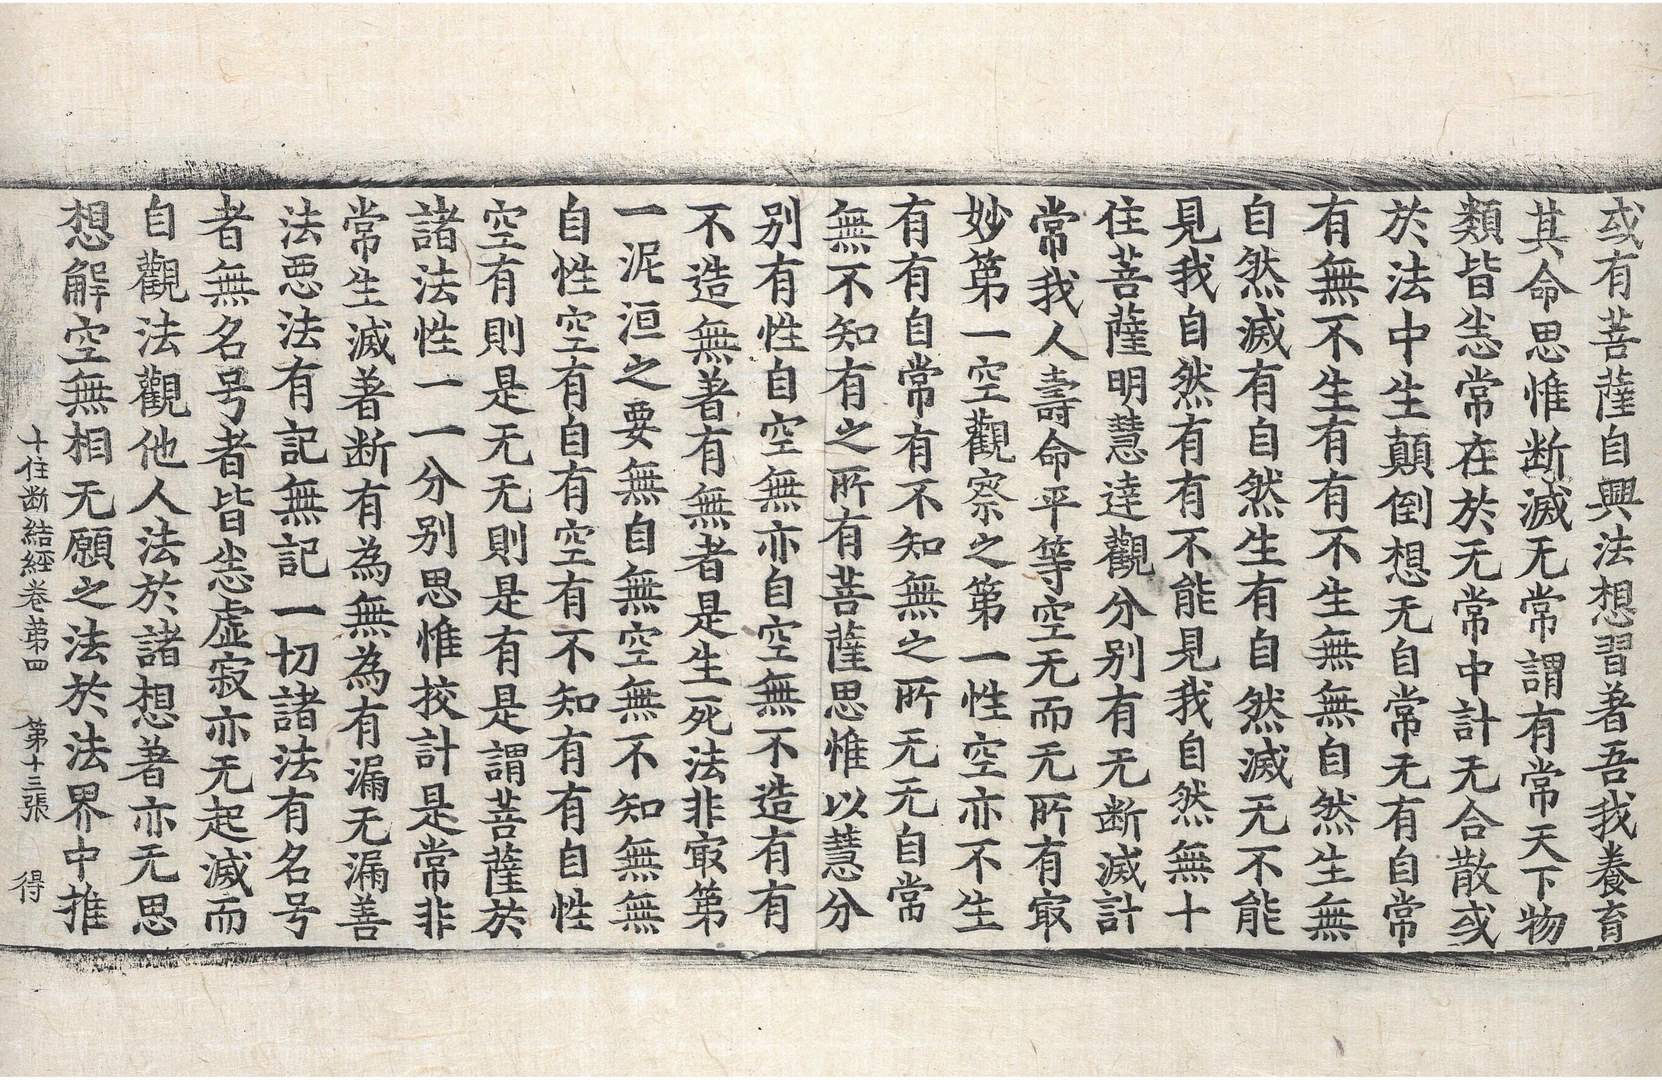 或有菩薩自興法想習著吾我養育
其命思惟断滅无常謂有常天下物
類皆悉常在於无常中計无合散或
於法中生顛倒想无自常无有自常
有無不生有有不生無無自然生無
自然滅有自然生有自然滅无不能
見我自然有有不能見我自然無十
住菩薩明慧達觀分别有无断滅計
常我人壽命平等空无而无所有㝡
妙第一空觀察之第一性空亦不生
有有自常有不知無之所无无自常
無不知有之所有菩薩思惟以慧分
别有性自空無亦自空無不造有有
不造無著有無者是生死法非㝡第
一泥洹之要無自無空無不知無無
自性空有自有空有不知有有自性
空有則是无无則是有是謂菩薩於
諸法性一一分别思惟校計是常非
常生滅著断有為無為有漏无漏善
法惡法有記無記一切諸法有名号
者無名号者皆悉虛寂亦无起滅而
自觀法觀他人法於諸想著亦无思
想解空無相无願之法於法界中推
十住断結經卷第四 第十三張 得